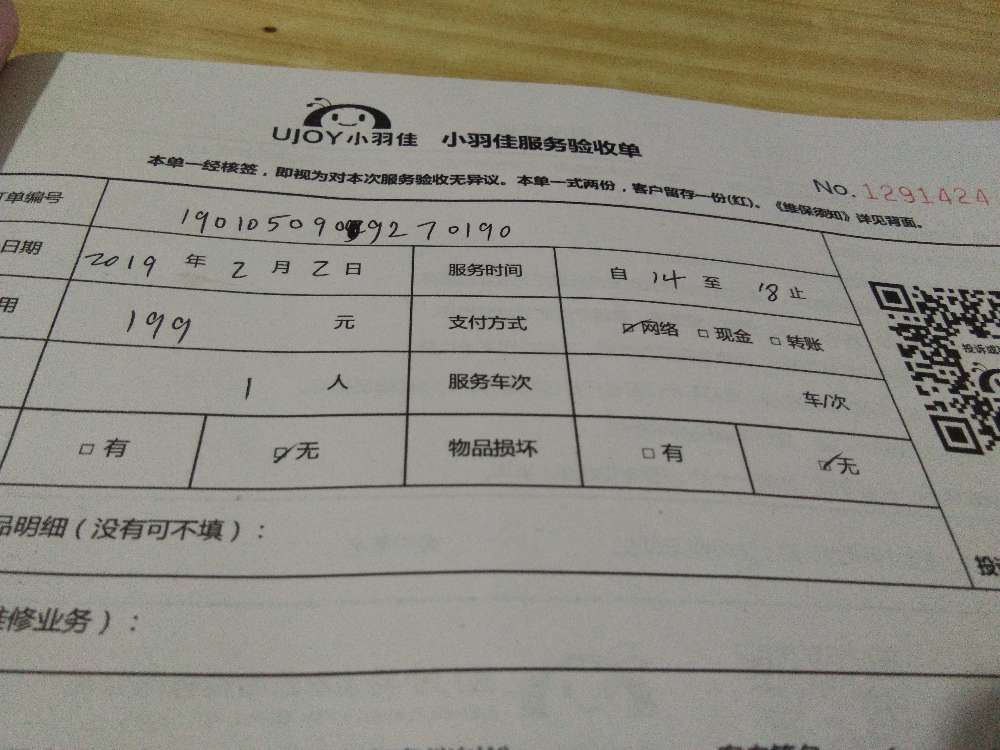 UJOY小羽佳 小羽佳服务验收单
本单一经核签，即视为对本次服务验收无异议。本单一式两份，客户留存一份(红)。《维保须知》详见背面。
No. 1291424
单编号 190105090 9270190
日期 2019 年 2 月 2 日 服务时间 自 14 至 18 止
用 199 元 支付方式 ☑网络 □现金 □转账
1 人 服务车次 车/次
□有 ☑无 物品损坏 □有 ☑无
品明细（没有可不填）：
维修业务）：